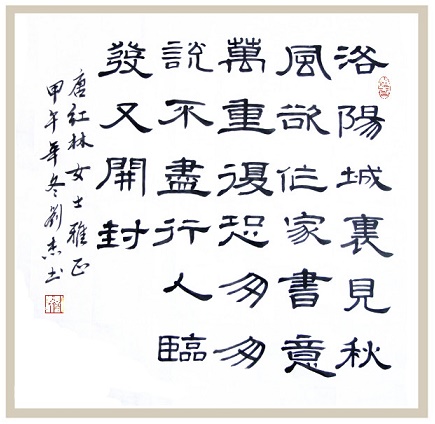 洛陽城裏見秋
風欲作家書意
萬重復恐匆匆
說不盡行人臨
發又開封
唐紅林女士雅正
甲午年冬劉杰书